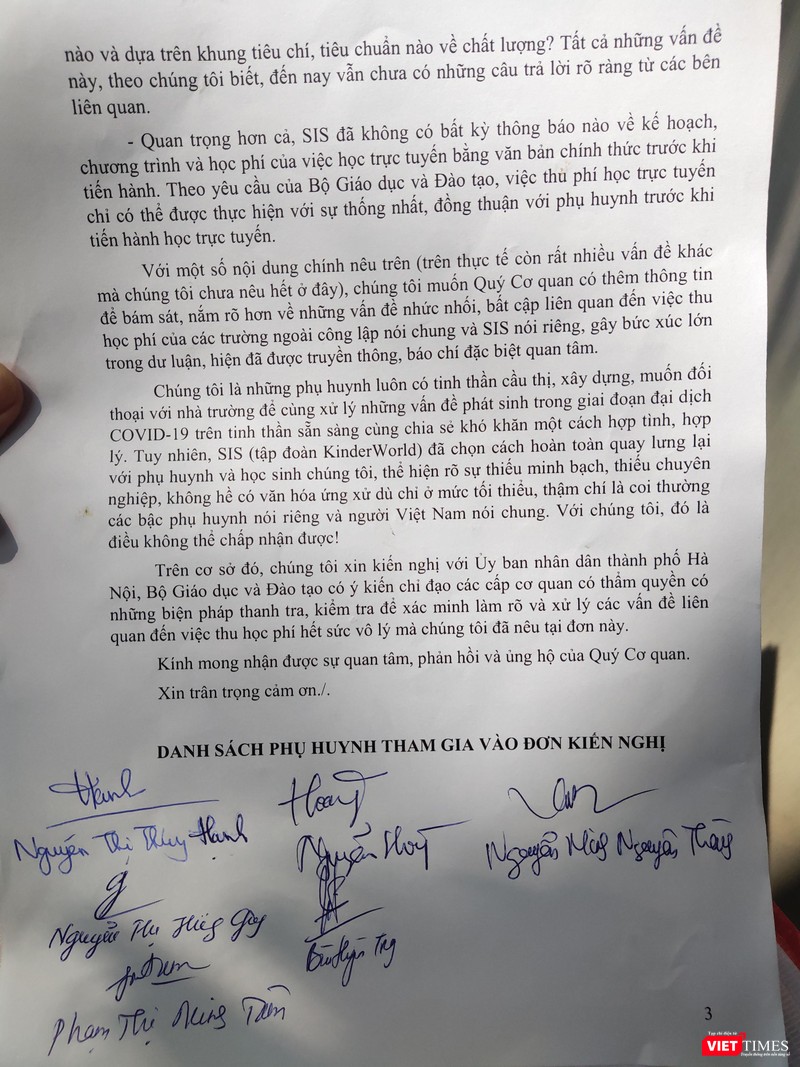 nào và dựa trên khung tiêu chí, tiêu chuẩn nào về chất lượng? Tất cả những vấn đề
này, theo chúng tôi biết, đến nay vẫn chưa có những câu trả lời rõ ràng từ các bên
liên quan.
- Quan trọng hơn cả, SIS đã không có bất kỳ thông báo nào về kế hoạch,
chương trình và học phí của việc học trực tuyến bằng văn bản chính thức trước khi
tiến hành. Theo yêu cầu của Bộ Giáo dục và Đào tạo, việc thu phí học trực tuyến
chỉ có thể được thực hiện với sự thống nhất, đồng thuận với phụ huynh trước khi
tiến hành học trực tuyến.
Với một số nội dung chính nêu trên (trên thực tế còn rất nhiều vấn đề khác
mà chúng tôi chưa nêu hết ở đây), chúng tôi muốn Quý Cơ quan có thêm thông tin
để bám sát, nắm rõ hơn về những vấn đề nhức nhối, bất cập liên quan đến việc thu
học phí của các trường ngoài công lập nói chung và SIS nói riêng, gây bức xúc lớn
trong dư luận, hiện đã được truyền thông, báo chí đặc biệt quan tâm.
Chúng tôi là những phụ huynh luôn có tinh thần cầu thị, xây dựng, muốn đối
thoại với nhà trường để cùng xử lý những vấn đề phát sinh trong giai đoạn đại dịch
COVID-19 trên tinh thần sẵn sàng cùng chia sẻ khó khăn một cách hợp tình, hợp
lý. Tuy nhiên, SIS (tập đoàn KinderWorld) đã chọn cách hoàn toàn quay lưng lại
với phụ huynh và học sinh chúng tôi, thể hiện rõ sự thiếu minh bạch, thiếu chuyên
nghiệp, không hề có văn hóa ứng xử dù chỉ ở mức tối thiểu, thậm chí là coi thường
các bậc phụ huynh nói riêng và người Việt Nam nói chung. Với chúng tôi, đó là
điều không thể chấp nhận được!
Trên cơ sở đó, chúng tôi xin kiến nghị với Ủy ban nhân dân thành phố Hà
Nội, Bộ Giáo dục và Đào tạo có ý kiến chỉ đạo các cấp cơ quan có thẩm quyền có
những biện pháp thanh tra, kiểm tra để xác minh làm rõ và xử lý các vấn đề liên
quan đến việc thu học phí hết sức vô lý mà chúng tôi đã nêu tại đơn này.
Kính mong nhận được sự quan tâm, phản hồi và ủng hộ của Quý Cơ quan.
Xin trân trọng cảm ơn./.
DANH SÁCH PHỤ HUYNH THAM GIA VÀO ĐƠN KIẾN NGHỊ
Hạnh
Nguyễn Thị Thúy Hạnh
Nguyễn
Nguyễn Thị
Phạm Thị Minh Tâm
3
Tạp chí điện tử
VIETTIMES